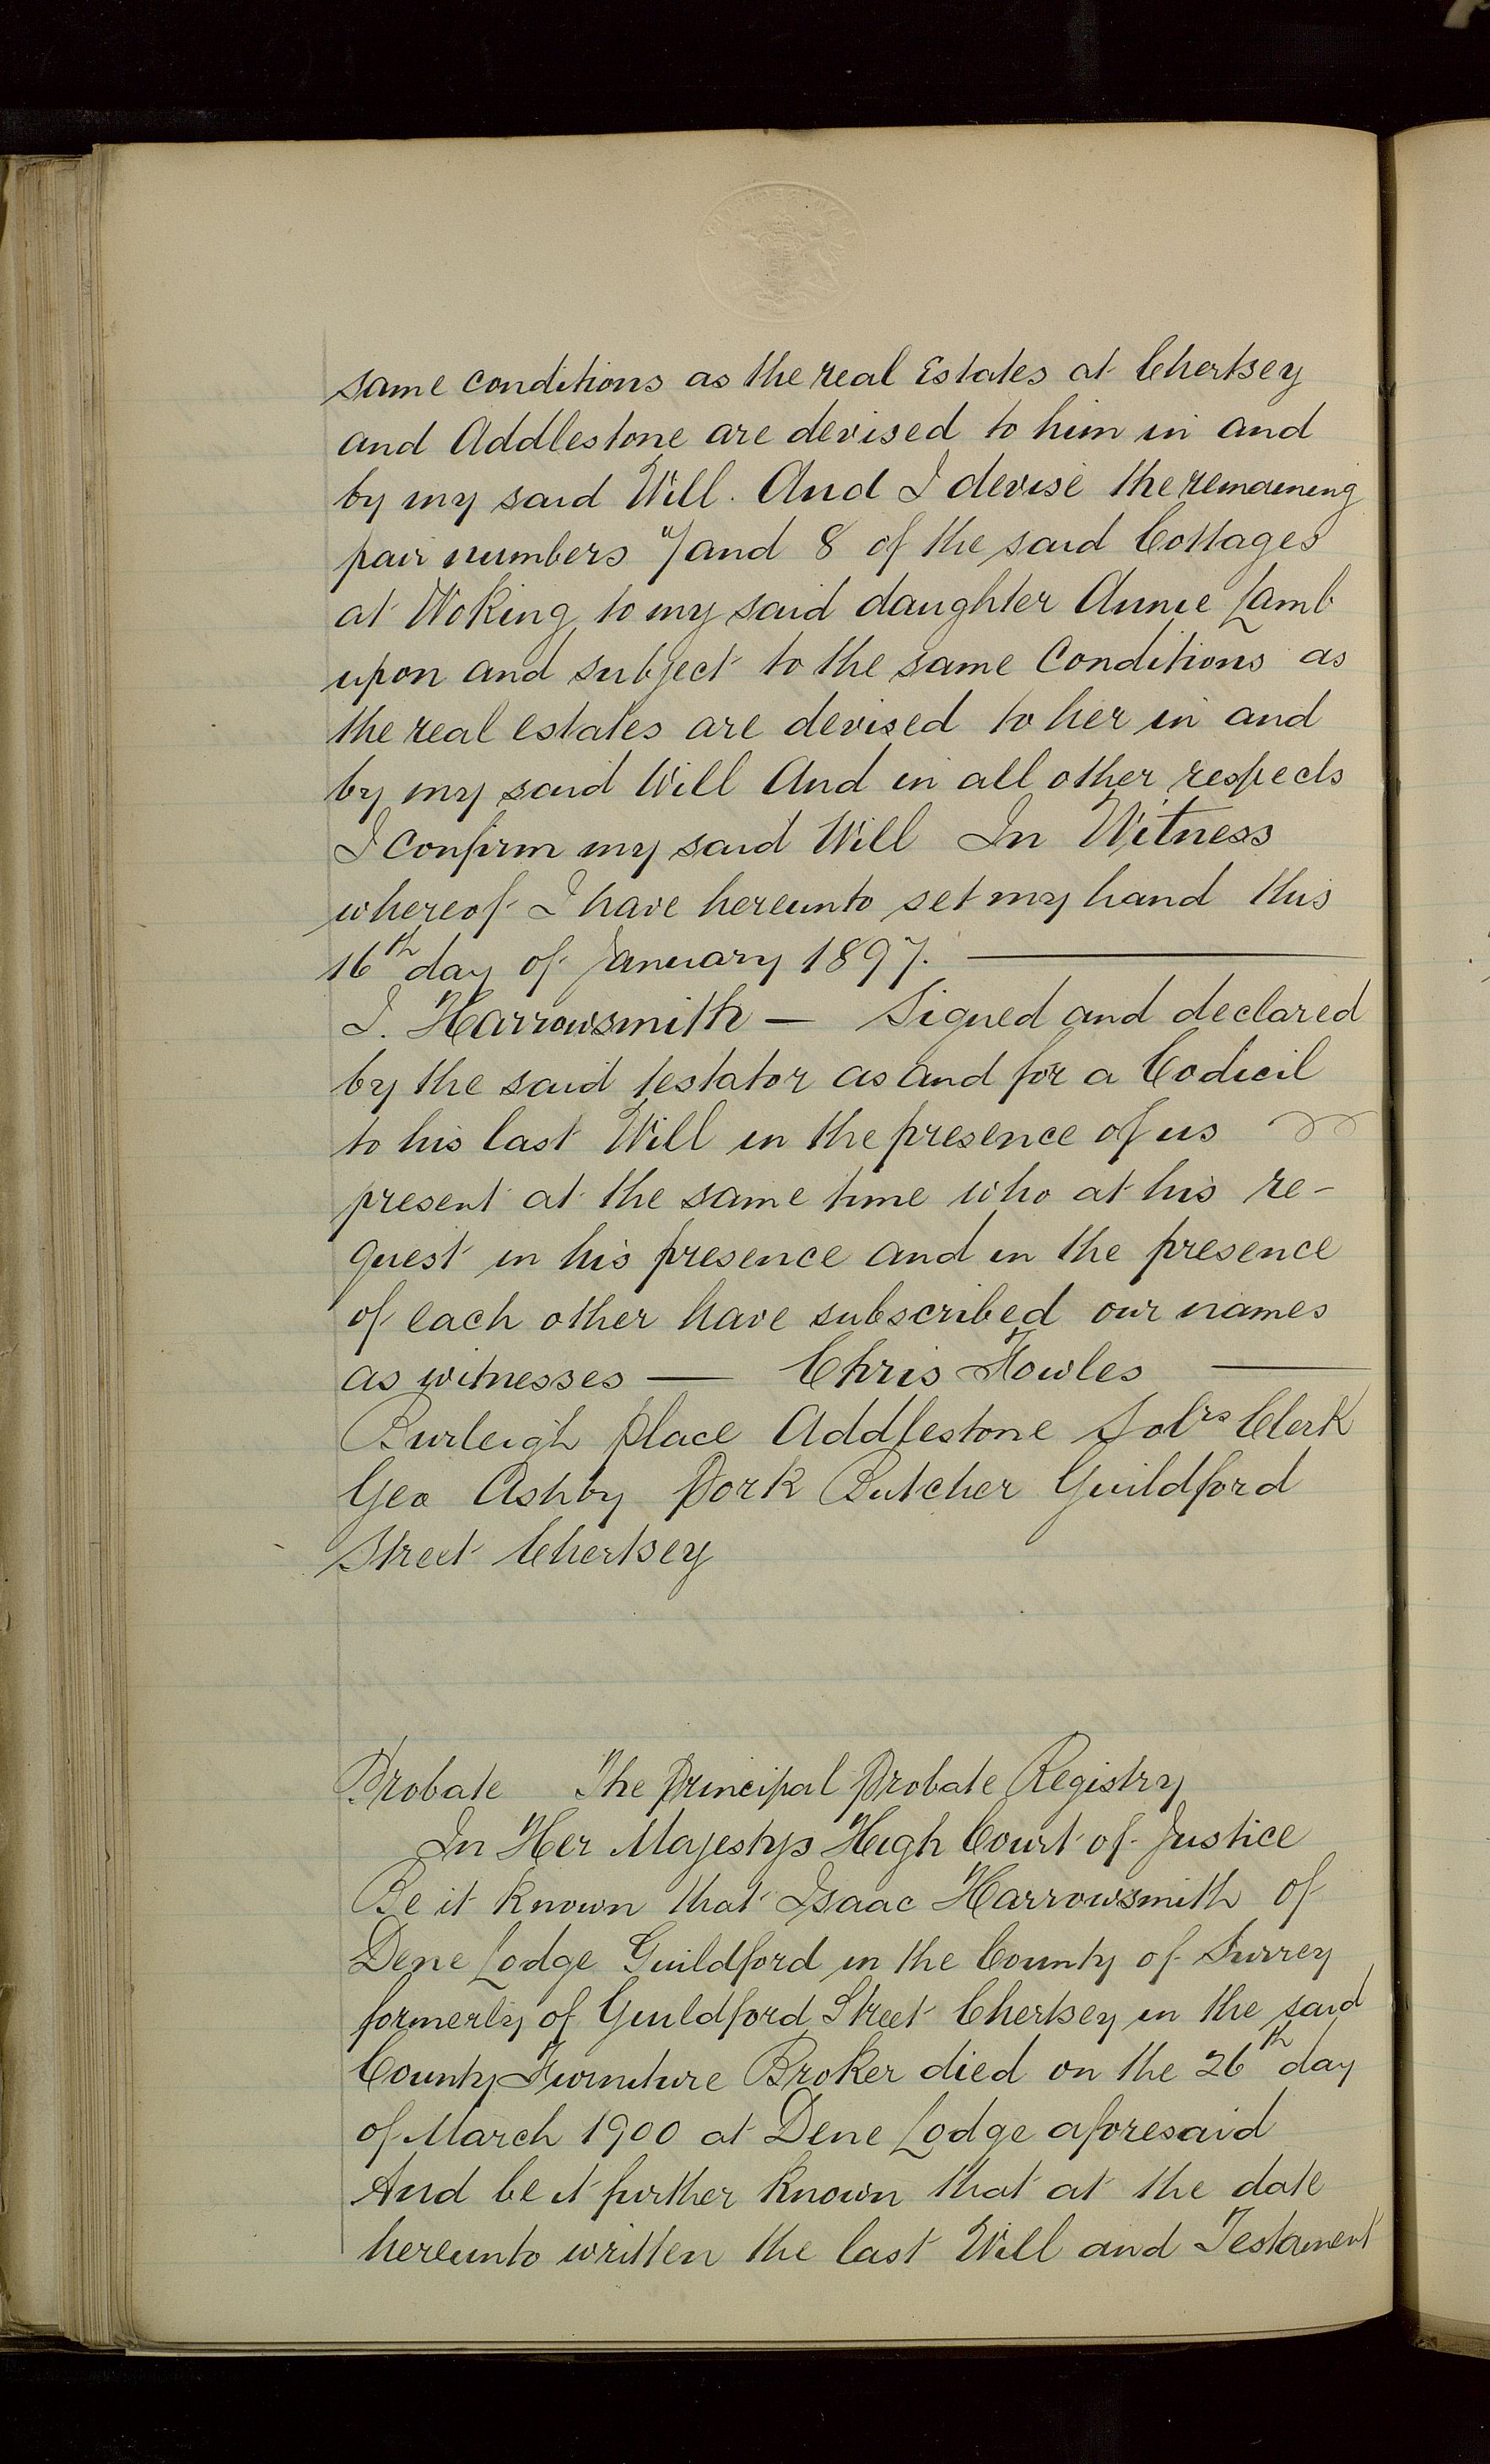 same conditions as the real Estates at Chertsey
and Addlestone are devised to him in and
by my said Will. And I devise the remaining
pair numbers 7 and 8 of the said Cottages
at Woking to my said daughter Annie Lamb
upon and subject to the same Conditions as
the real estates are devised to her in and
by my said Will And in all other respects
I confirm my said Will In Witness
whereof I have hereunto set my hand this
16th day of January 1897. —
I. Harrowsmith — Signed and declared
by the said testator as and for a Codicil
to his last Will in the presence of us
present at the same time who at his re-
quest in his presence and in the presence
of each other have subscribed our names
as witnesses — Chris Fowles —
Burleigh place Addlestone Solrs Clerk
Geo Ashby Pork Butcher Guildford
Street Chertsey
Probate The Principal Probate Registry
In Her Majestys High Court of Justice
Be it known that Isaac Harrowsmith of
Dene Lodge Guildford in the County of Surrey
formerly of Guildford Street Chertsey in the said
County Furniture Broker died on the 26th day
of March 1900 at Dene Lodge aforesaid
And be it further known that at the date
hereunto written the last Will and Testament